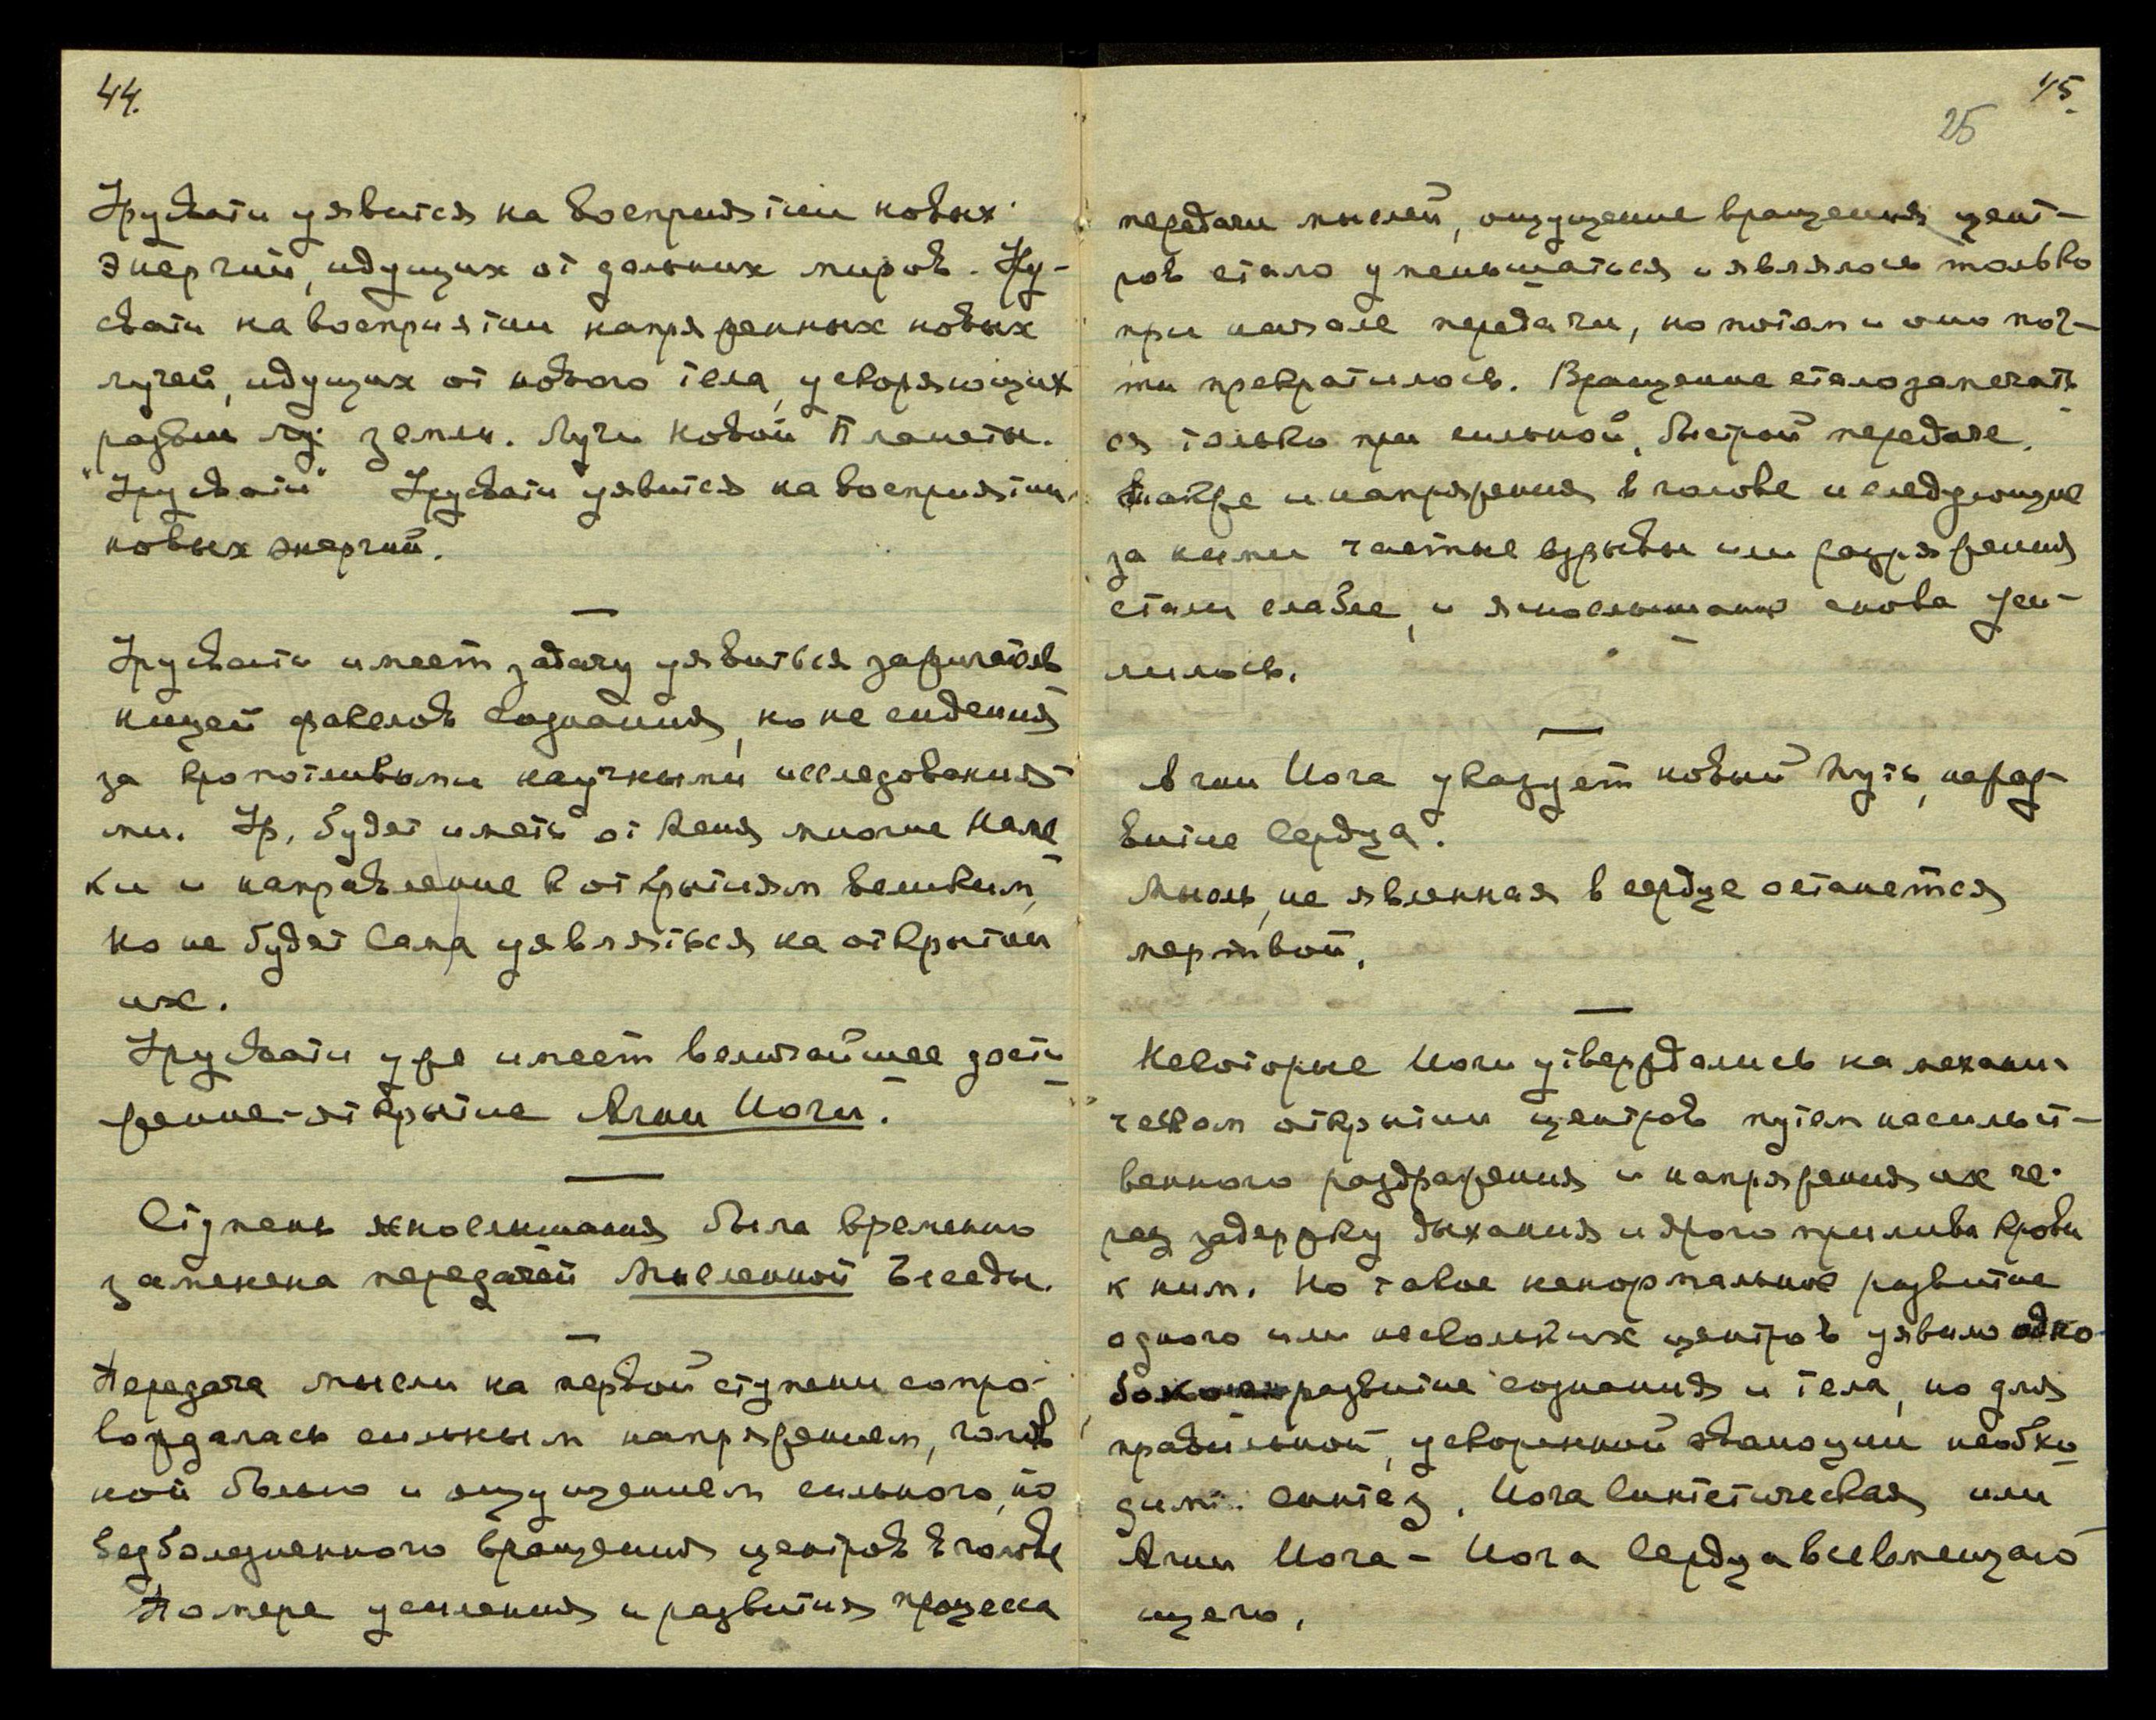 44.
Урусвати уявится на восприятии новых
энергий, идущих от дальних миров. Уру-
свати на восприятии напряженных новых
лучей, идущих от нового тела, ускоряющих
развит земли. Лучи новой Планеты.
"Урусвати" Урусвати уявится на восприятии
новых энергий.
Урусвати имеет задачу уявиться зажигатель
ницей факелов сознания, но не сидения
за кропотливыми научными исследования-
ми. Ур. будет иметь от Меня многие наме
ки и направление к открытиям великим,
но не будет сама уявляться на открытии
их.
Урусвати уже имеет величайшее дости
жение-открытие Агни Йоги.
Ступень яснослышания была временно
заменена передачей Мысленной Беседы.
Передача мысли на первой ступени сопро-
вождалась сильным напряжением, голов
ной болью и ощущением сильного, но
безболезненного вращения центров в голове
По мере усиления и развития процесса
45.
25
передачи мыслей, ощущение вращения цент-
ров стало уменьшаться и являлось только
при начале передачи, но потом и оно поч-
ти прекратилось. Вращение стало замечать
ся только при сильной, быстрой передаче.
также и напряжения в голове и следующие
за ними частые взрывы или разряжения
стали слабее, и яснослышание снова уси-
лилось.
Агни Йога указует новый путь, на раз-
витие сердца.
Мысль, не явленная в сердце останется
мертвой.
Некоторые Йоги утверждались на механи-
ческом открытии центров путем насильст-
венного раздражения и напряжения их че-
рез задержку дыхания и ярого прилива крови
к ним. Но такое ненормальное развитие
одного или нескольких центров уявило одно
бокое развитие сознания и тела, но для
правильной, ускоренной эволюции необхо
дим синтез. Йога Синтетическая или
Агни Йога - Йога Сердца всевмещаю
щего.